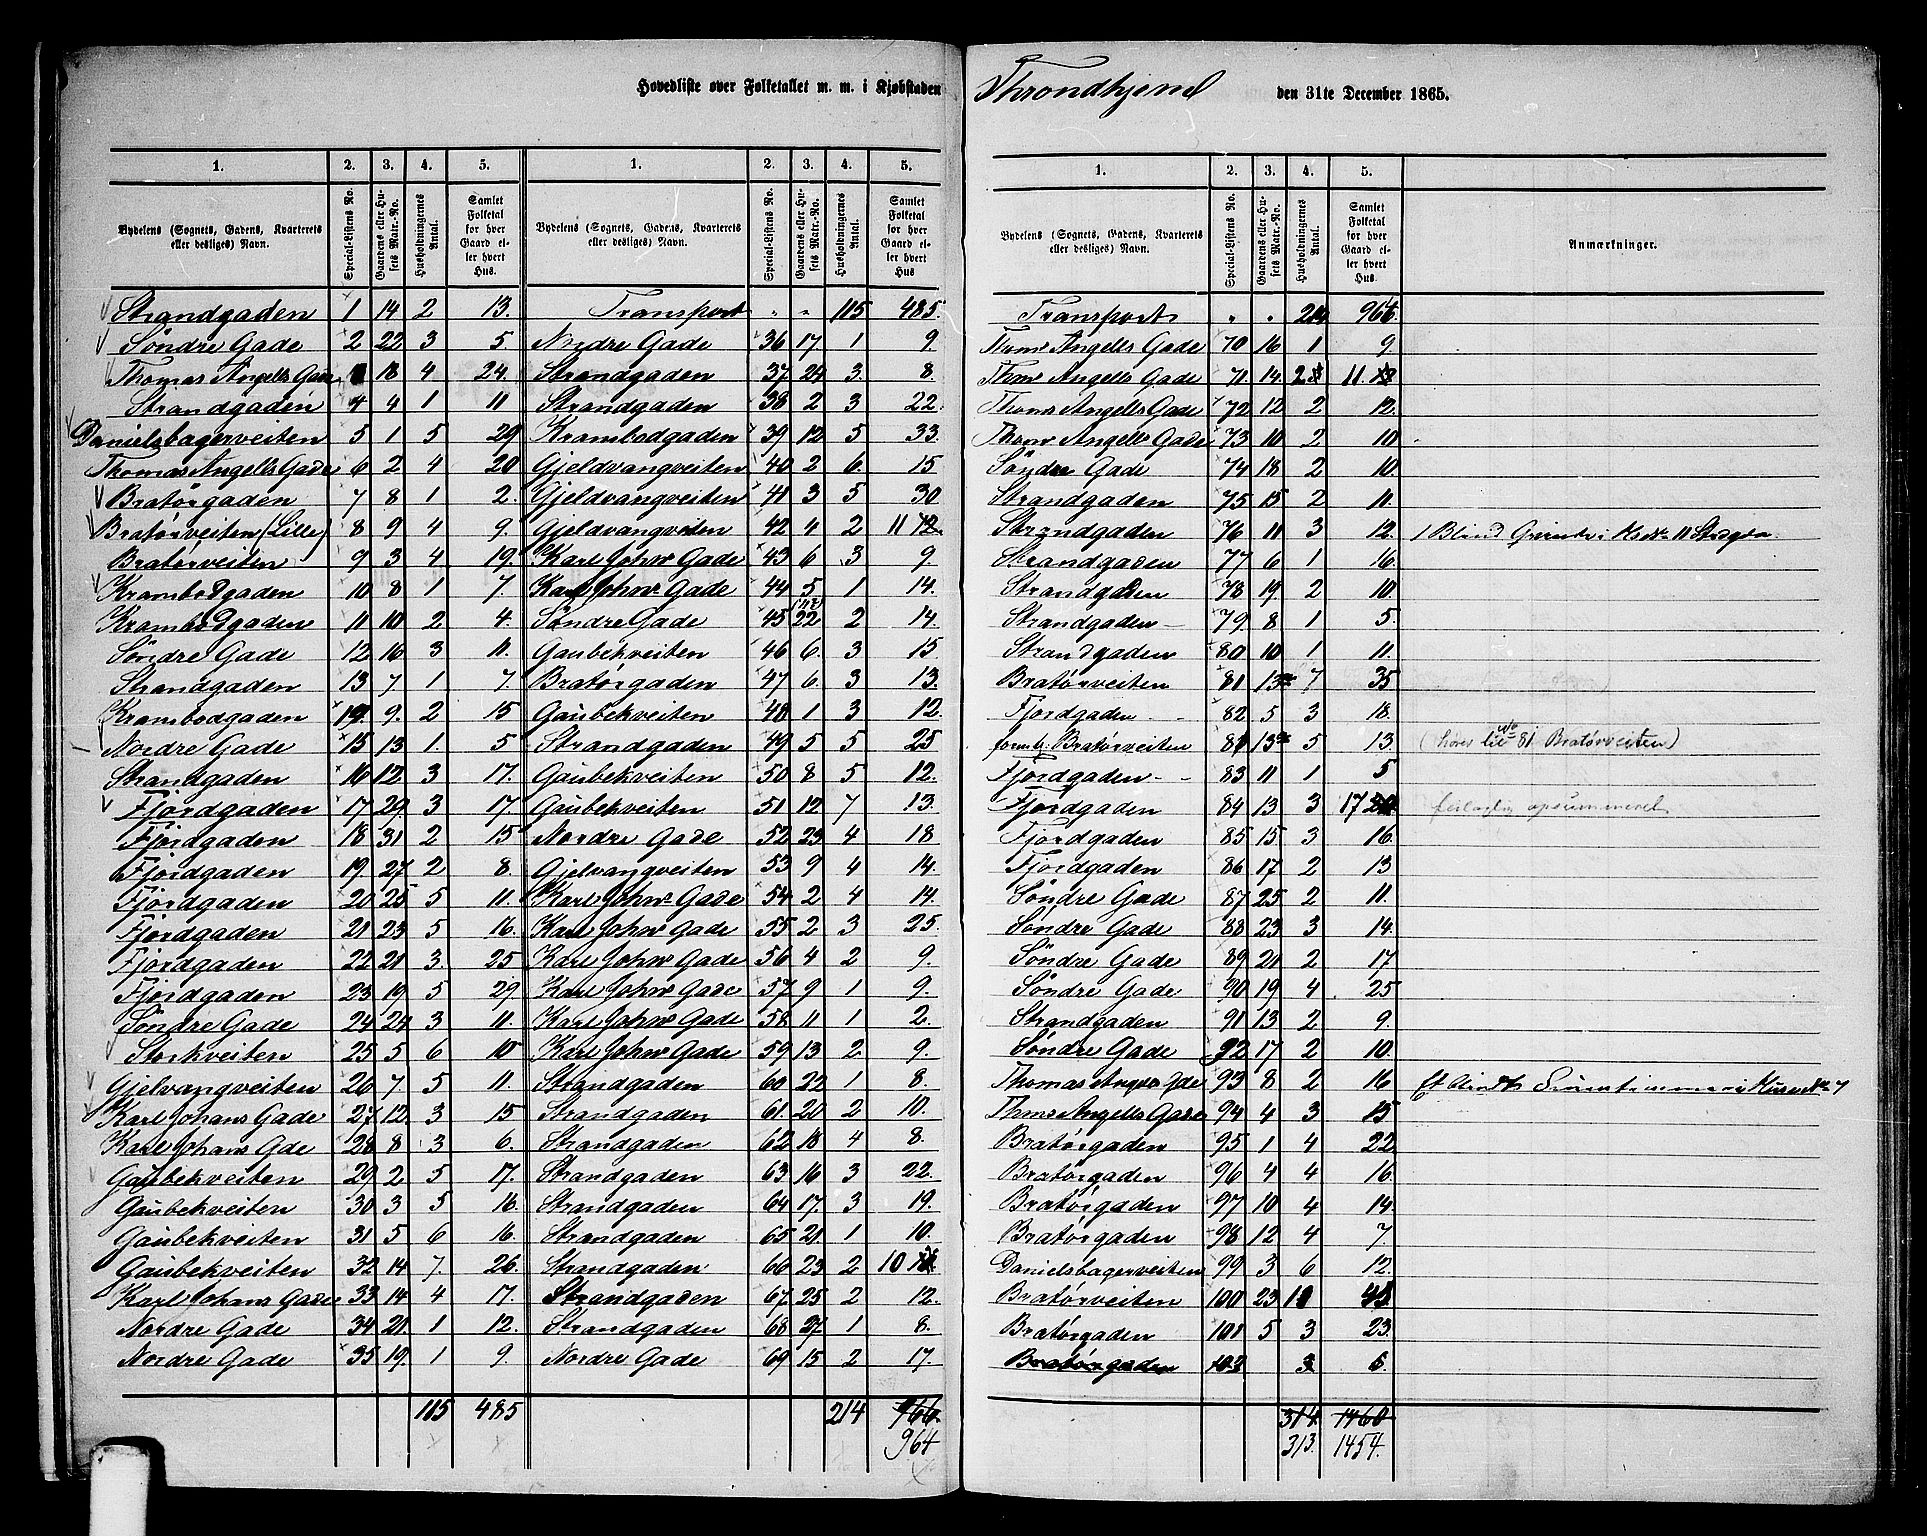 Hovedliste over Folketallet m. m. i Kjøbstaden Throndhjem den 31te December 1865.
1. 2. 3. 4. 5. 1. 2. 3. 4. 5.
Bydelens (Sognets, Gadens, Kvarterets eller desliges) Navn. Special-Listens No. Gaardens eller Husets Matr.-No. Husholdningernes Antal. Samlet Folketal for hver Gaard eller hvert Hus. Bydelens (Sognets, Gadens, Kvarterets eller desliges) Navn. Special-Listens No. Gaardens eller Husets Matr.-No. Husholdningernes Antal. Samlet Folketal for hver Gaard eller hvert Hus
Strandgaden 1 14 2 13. Transport " " 115 485.
Søndre Gade 2 22 3 5 Nordre Gade 36 17 1 9
Thomas Angells Gade 18 4 24. Strandgaden 37 24 3. 8.
Strandgaden 4 4 1 11 Strandgaden 38 2 3 22.
Danielsbagerveiten 5 1 5 29 Krambodgaden 39 12 5 33.
Thomas Angells Gade 6 2 4 20 Gjeldvangveiten 40 2 6. 15
Bratørgaden 7 8 1 2. Gjeldvangveiten 41 3 5 30
Bratørveiten (Lille) 8 9 4 9. Gjeldvangveiten 42 4 2 11 12.
Bratørveiten 9 3 4 19. Karl Johns Gade 43 6 3 9.
Krambodgaden 10 8 1 7. Karl Johns Gade 44 5 1 14.
Krambodgaden 11 10 2 4. Søndre Gade 45 22 2 14.
Søndre Gade 12 16 3 11. Gaubekveiten 46 6. 3 15
Strandgaden 13 7 1 7. Bratørgaden 47 6 3 13.
Krambodgaden 14 9. 2 15 Gaubekveiten 48 1 3 12.
Nordre Gade 15 13 1. 5 Strandgaden 49 5 5 25
Strandgaden 16 12 3 17. Gaubekveiten 50 8 5 12.
Fjordgaden 17 29 3 17. Gaubekveiten 51 12 7 13.
Fjordgaden 18 31 2 15 Nordre Gade 52 23 4 18
Fjordgaden 19 27 2 8 Gjelvangveiten 53 9 4 14.
Fjordgaden 20 25 5 11. Karl Johns Gade 54 2 4 14.
Fjordgaden 21 23 5 16. Karl Johns Gade 55 2 3 25.
Fjordgaden 22 21 3. 25 Karl Johns Gade 56 4 2 9.
Fjordgaden 23 19 5 29 Karl Johns Gade 57 9 1 9.
Søndre Gade 24 24 3 11. Karl Johns Gade 58 11 1 2.
Storkveiten 25 5 6 10 Karl Johns Gade 59 13 2 9.
Gjelvangveiten 26 7. 5 11. Strandgaden 60 22 1 8.
Karl Johans Gade 27 12 3 15 Strandgaden 61. 20 2 10.
Karl Johans Gde 28 8 3 6. Strandgaden 62 18 4 8.
Gaubekveiten 29 2 5 17. Strandgaden 63 16 3 22.
Gaubekveiten 30 3 5 16. Strandgaden 64 17. 3 19.
Gaubekveiten 31 5 6 16. Strandgaden 65 21. 1 10.
Gaubekveiten 32 14 7. 26. Strandgaden 66 23 2 10
Karl Johans Gade 33 14 4 17. Strandgaden 67 25 2 12.
Nordre Gade 34 21. 1 12. Strandgaden 68 27 1 8.
Nordre Gade 35 19. 1 9. Nordre Gade 69 15 2 17.
115 485 214 966.
964
1. 2. 3. 4. 5.
Bydelens (Sognets, Gadens, Kvarterets eller desliges) Navn. Special-Listens No. Gaardens eller Husets Matr.-No. Husholdningernes Antal. Samlet Folketal for hver Gaard eller hvert Hus. Anmærkninger.
Transport " " 214 966.
Thoms Angells Gade 70 16 1 9.
Thms Angells Gade 71 14. 2 11.
Thoms Angells Gade 72 12 2 12.
Thoms Angells Gade 73 10 2 10
Søndre Gade 74 18 2 10
Strandgaden 75 15 2 11.
Strandgaden 76 11 3 12. 1 Blind
Strandgaden 77 6 1 16
Strandgaden 78 19. 2 10.
Strandgaden 79 8 1 5.
Strandgaden 80 10 1 11.
Bratørveiten 81 13 7 35
Fjordgaden 82 5 3 18.
Bratørveiten 81 13 5 13. (hører til No 81 Bratørveiten)
Fjordgaden 83 11 1 5
Fjordgaden 84 13 3 17 feilagtig opsummeret
Fjordgaden 85 15 3 16.
Fjordgaden 86 17 2 13
Søndre Gade 87 25 2 11.
Søndre Gade 88 23 3 14.
Søndre Gade 89 21 2 17
Søndre Gade 90 19 4 25
Strandgaden 91 13 2 9.
Søndre Gade 92 17 2 10.
Thomas Angells Gde 93 8 2 16
Thms Angells Gade 94 4 3 15
Bratørgaden 95 1 4 22
Bratørgaden 96 4 4 16.
Bratørgaden 97 10 4 14.
Bratørgaden 98 12 4 7.
Danielsbagerveiten 99 3 6 12.
Bratørveiten 100 23
Bratørgaden 101 5 3 23.
Bratørgaden 103 3 6.
314 1460
313. 1454.